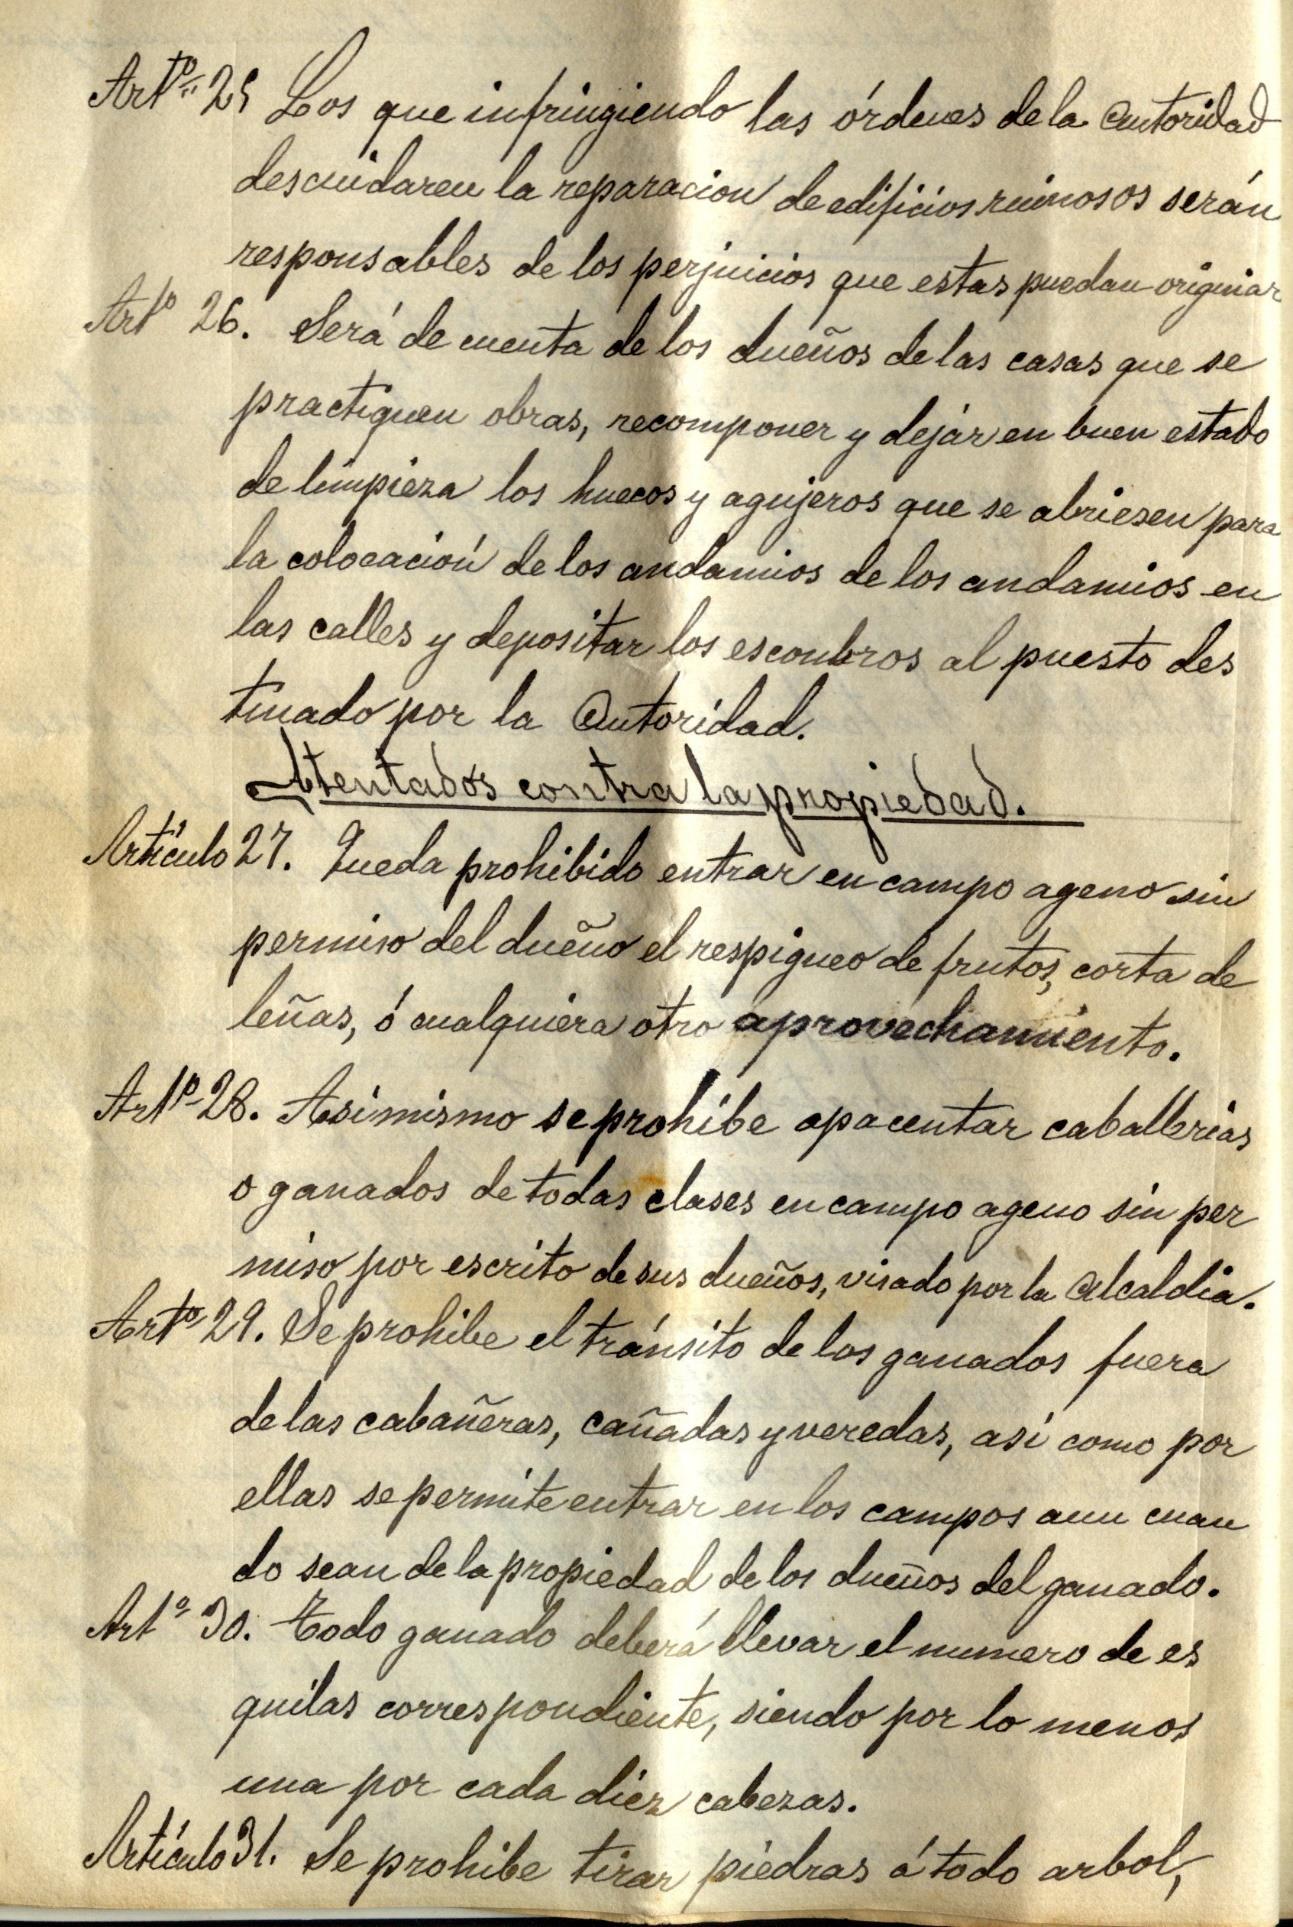 Artº 25 Los que infringiendo las órdenes de la Autoridad
descuidaren la reparacion de edificios ruinosos serán
responsables de los perjuicios que estas puedan originar
Artº 26. Será de cuenta de los dueños de las casas que se
practiquen obras, recomponer y dejar en buen estado
de limpieza los huecos y agujeros que se abriesen para
la colocación de los andamios de los andamios en
las calles y depositar los escombros al puesto des
tinado por la Autoridad.
Atentados contra la propiedad.
Artículo 27. Queda prohibido entrar en campo ageno sin
permiso del dueño el respigueo de frutos, corta de
leñas, ó cualquiera otro aprovechamiento.
Artº 28. Asimismo se prohibe apacentar caballerias
o ganados de todas clases en campo ageno sin per
miso por escrito de sus dueños, visado por la Alcaldia.
Artº 29. Se prohibe el tránsito de los ganados fuera
de las cabañeras, cañadas y veredas, asi como por
ellas se permite entrar en los campos aun cuan
do sean de la propiedad de los dueños del ganado.
Artº 30. Todo ganado deberá llevar el numero de es
quilas correspondiente, siendo por lo menos
una por cada diez cabezas.
Artículo 31. Se prohibe tirar piedras á todo arbol,